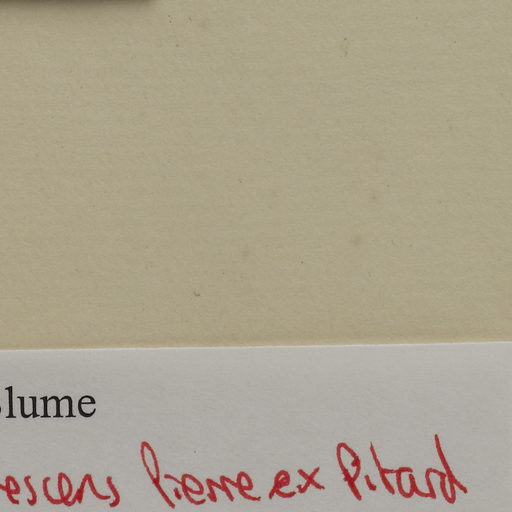 Blume
rescens Pierre ex Pitard